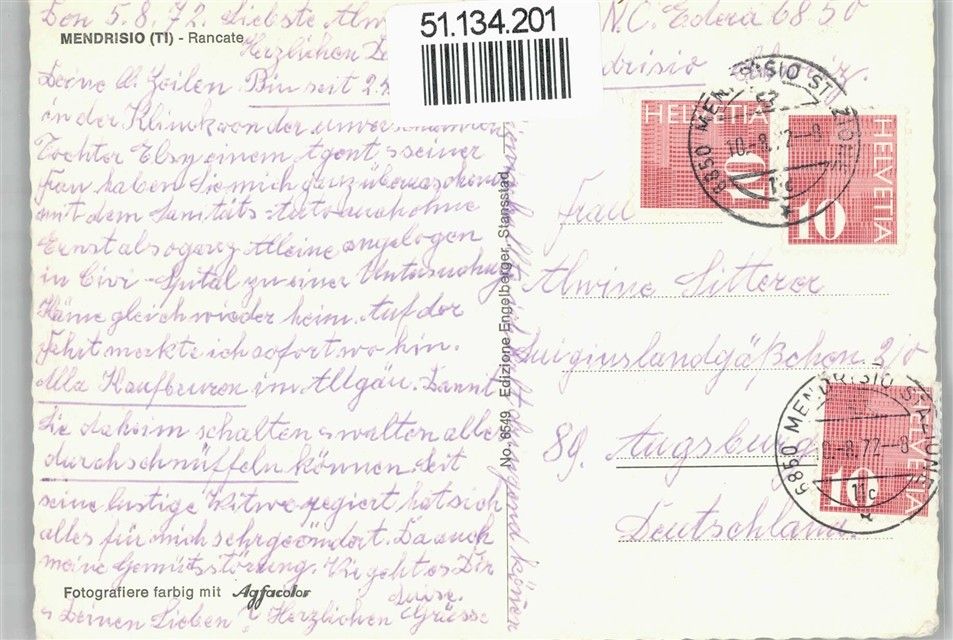 Den 5.8.72. Liebste Alw
MENDRISIO (TI) - Rancate
Herzlichen
Deine lb. Zeilen. Bin seit 2
in der Klinik von der
Tochter Elsy einem Agent, s seiner
Frau haben Sie mich ganz
mit dem Sanitäts Auto auch ohne
Ernst also ganz Alleine angelogen
in Civi-Spital zu einer Untersuchung
Käme gleich wieder heim. Auf der
Fahrt merkte ich sofort wo hin.
Alla Kaufbeuren im Allgäu. Dannt
Sie daheim schalten u walten alles
durchschnüffeln können. Seit
seine lustige Witwe regiert hat sich
alles für mich sehr geändert. Da auch
meine Gemütsstörung. Wie geht es Dir
Fotografiere farbig mit Agfacolor
Luise.
u Deinen Lieben u Herzlichen Grüsse
51.134.201
No. 6549 Edizione Engelberger, Stansstad
N.C. Edera 6850
drisio
HELVETIA
10
HELVETIA
10
6850 MENDRISIO STAZIONE
10.-8.72-8
11c
Frau
Alwine Sitterer
2/0
89. Augsburg
Deutschland.
HELVETIA
10
6850 MENDRISIO STAZIONE
10.-8.72-8
11c